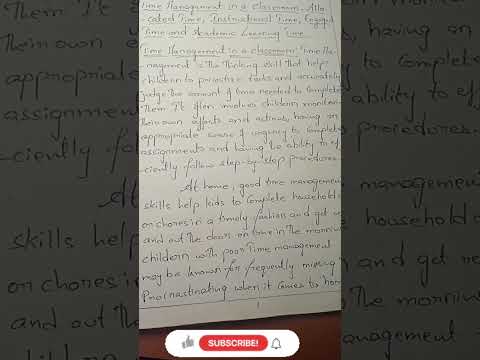 Time Management in a Classroom- Allo-
cated Time, Instructional Time, Engaged
Time and Academic Learning Time
Time Management in a classroom: Time Ma-
-nagement is the thinking skill that helps
children to prioritize tasks and accurately
judge the amount of time needed to complete
them. It often involves children monitor
their own efforts and activity, having an
appropriate sense of urgency to complete
assignments and having the ability to eff
-ciently follow step-by-step procedures.
At home, good time management
skills help kids to complete household
or chores in a timely fashion and get re
and out the doors on time in the mornin
children with poor time management
may be known for frequently missing
Procrastinating when it comes to hom
1
SUBSCRIBE!